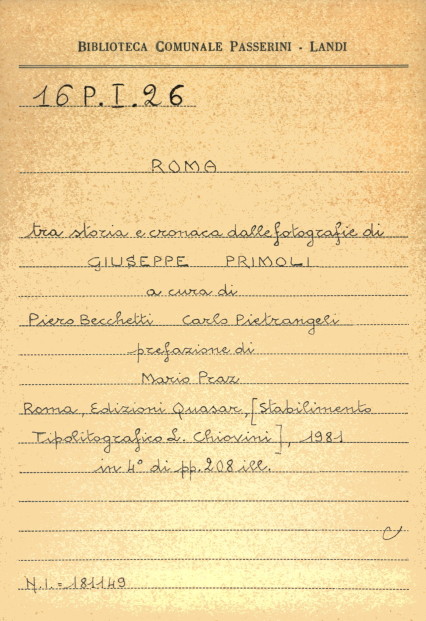 BIBLIOTECA COMUNALE PASSERINI - LANDI
16 P. I. 26
ROMA
tra storia e cronaca dalle fotografie di
GIUSEPPE PRIMOLI
a cura di
Piero Becchetti Carlo Pietrangeli
prefazione di
Mario Praz
Roma, Edizioni Quasar, [Stabilimento
Tipolitografico L. Chiovini], 1981
in 4° di pp. 208 ill.
N.I. = 181149